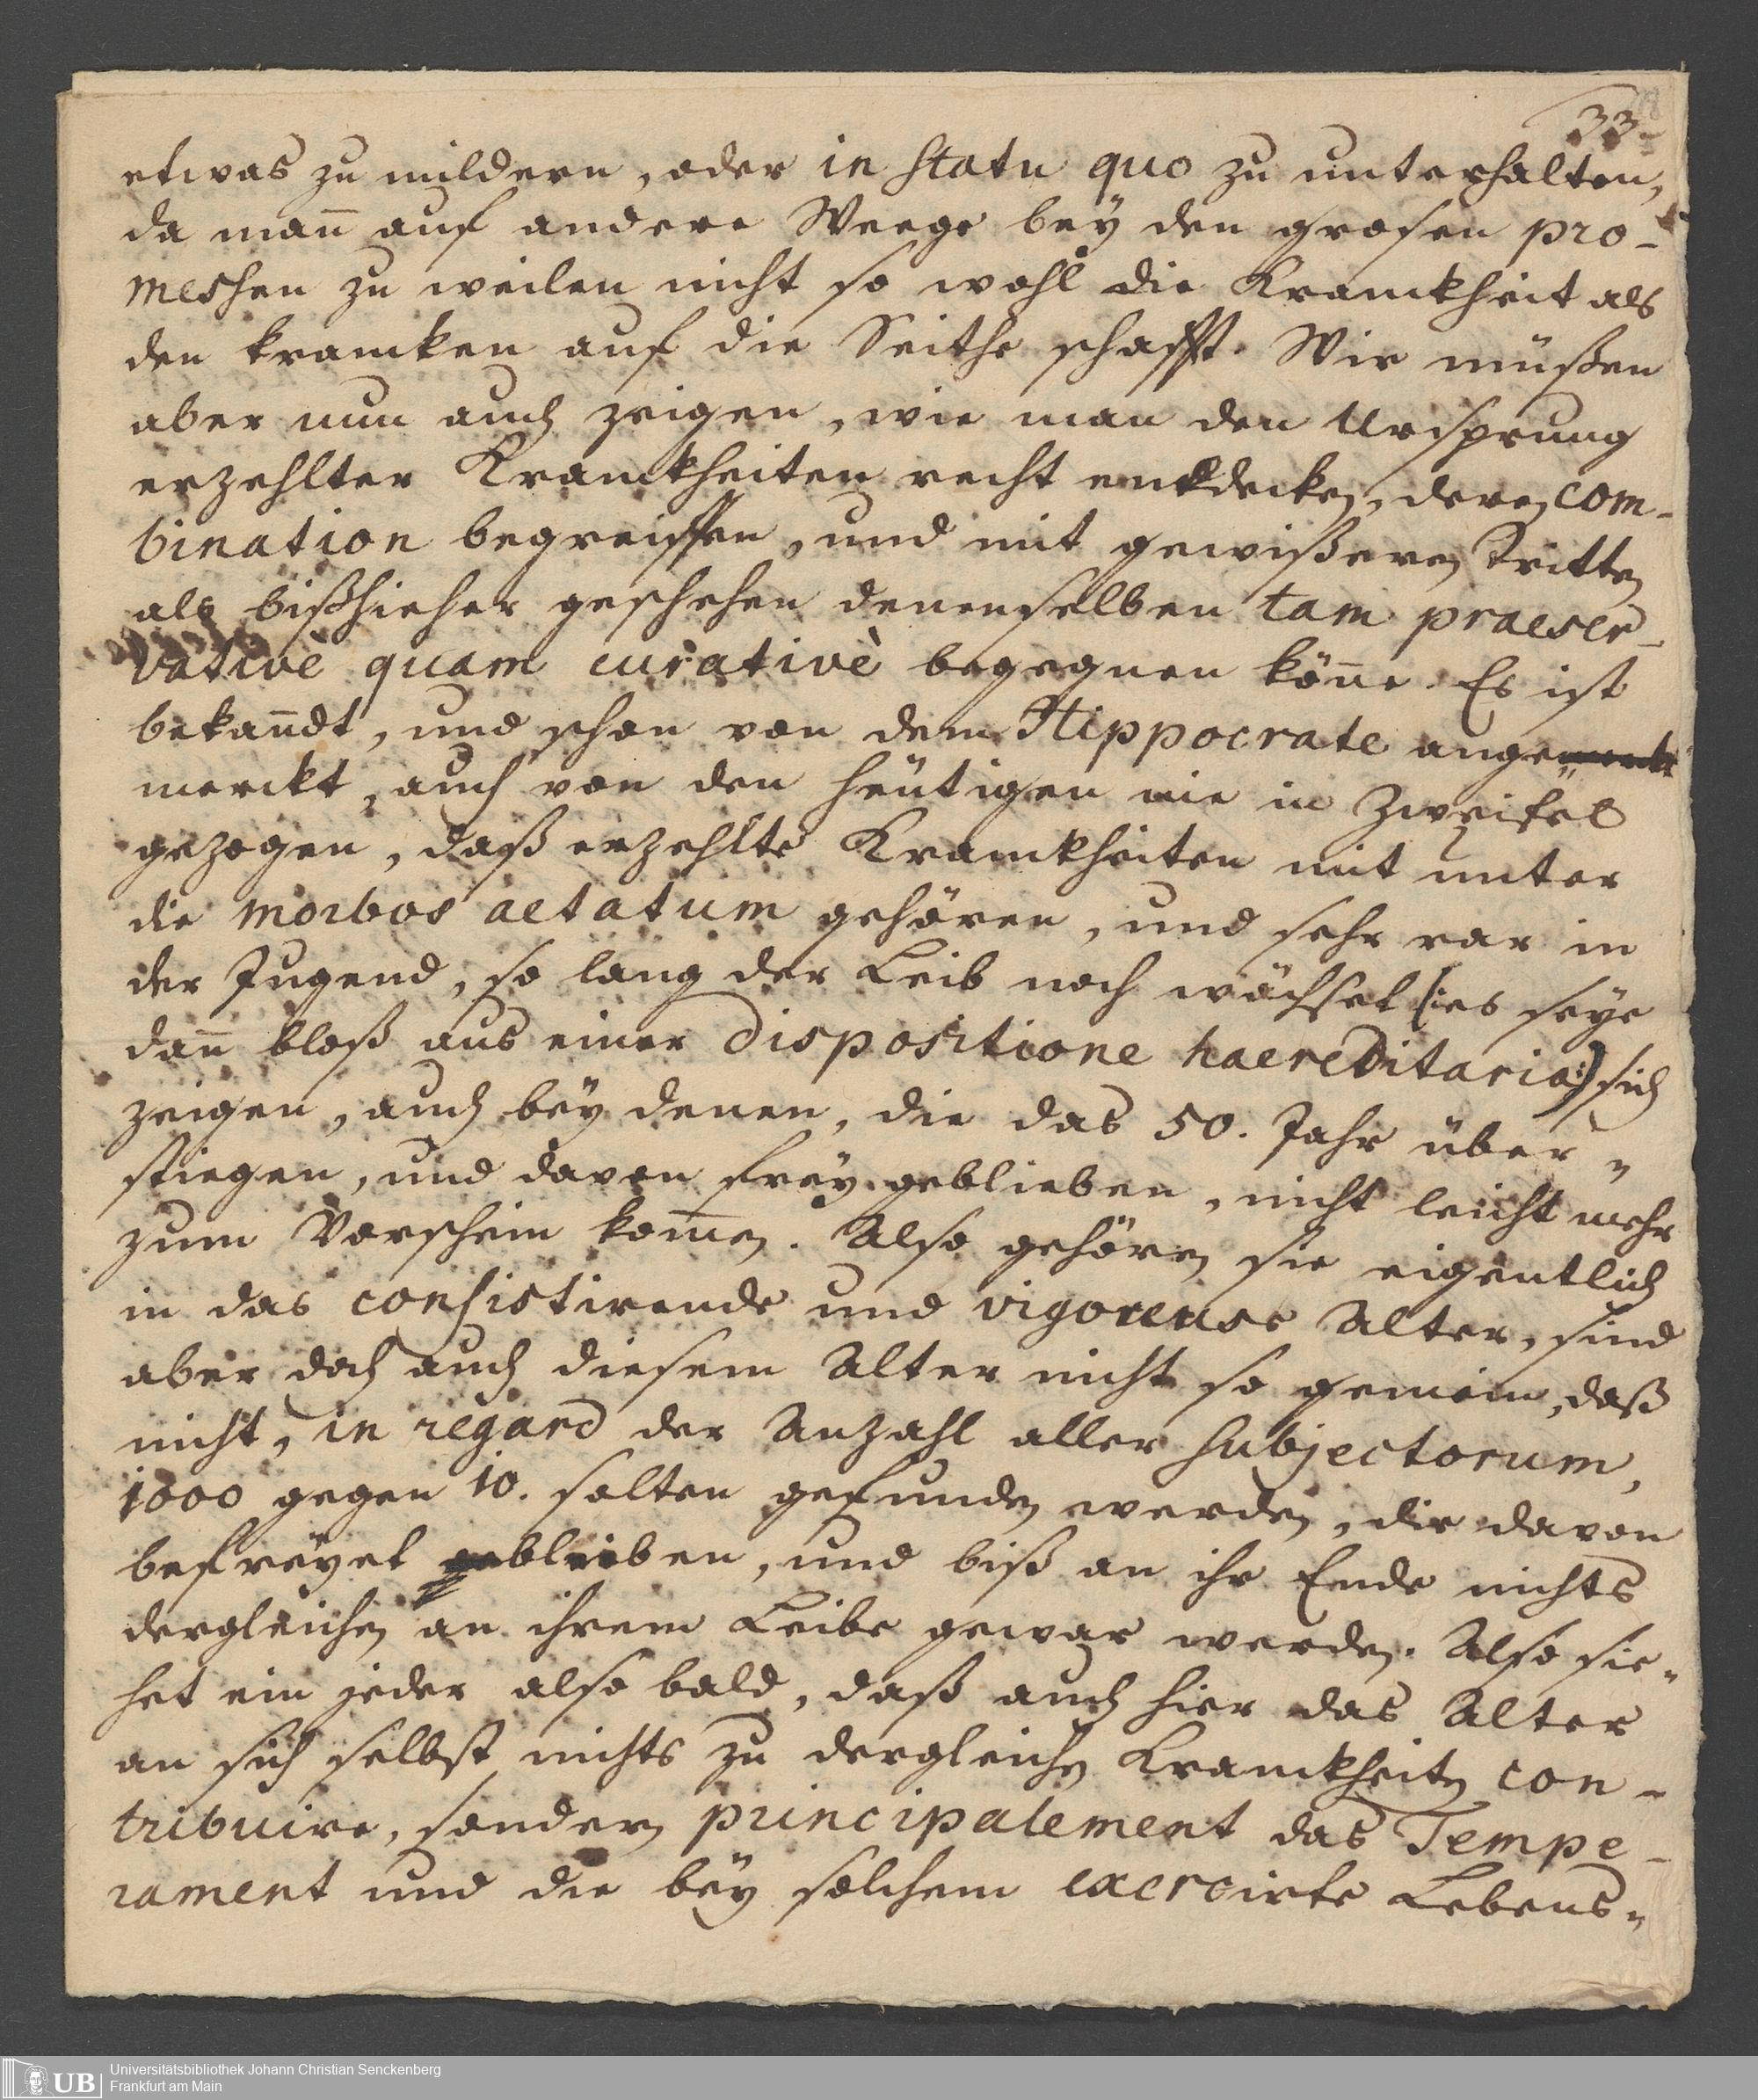 33
etwas zu mildern, oder in statu quo zu unterhalten,
da man̄ auf andere Weege beÿ den grosen pro-
messen zu weilen nicht so wohl die Kranckheit als
den krancken auf die Seithe schafft. Wir müßen
aber nun auch zeigen, wie man den Ursprung
erzehlter Kranckheiten recht entdecken, deren com-
bination begreiffen, und mit gewißeren Tritten
als bißhieher geschehen denenselben tam praeser-
vativè quam curativè begegnen kön̄e. Es ist
bekan̄dt, und schon von dem Hippocrate ange
merckt, auch von den heütigen nie in Zweifel
gezogen, daß erzehlte Kranckheiten mit unter
die morbos aetatum gehören, und sehr rar in
der Jugend, so lang der Leib noch wächset (:es seye
dan̄ bloß aus einer dispositione haereditaria:) sich
zeigen, auch beÿ denen, die das 50. Jahr über„
stiegen, und davon freÿ geblieben, nicht leicht mehr
zum Vorschein kom̄en. Also gehören sie eigentlich
in das consistirende und vigoreuse Alter, sind
aber doch auch diesem Alter nicht so gemein, daß
nicht, in regard der Anzahl aller subjectorum,
1000 gegen 10. solten gefunden werden, die davon
befreÿet bleiben, und biß an ihr Ende nichts
dergleichen an ihrem Leibe gewar werden. Also sie„
het ein jeder also bald, daß auch hier das Alter
an sich selbst nichts zu dergleichen Kranckheiten con-
tribuire, sondern principalement das Tempe-
rament und die beÿ solchem exercirte Lebens„
UB
Universitätsbibliothek Johann Christian Senckenberg
Frankfurt am Main